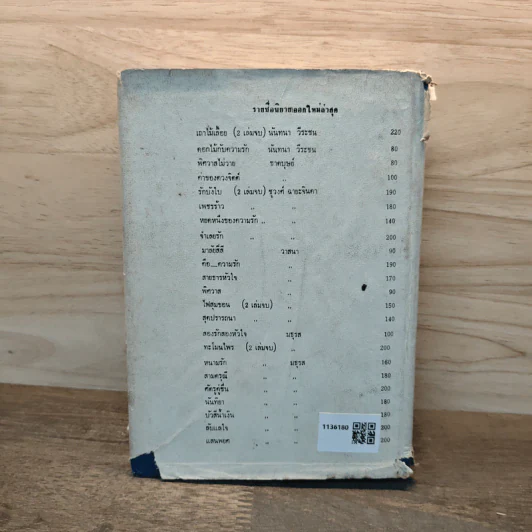 รายชื่อนิยายออกใหม่ล่าสุด
เถาไม้เลื้อย (2 เล่มจบ) นันทนา วีระชน 220
ดอกไม้กับความรัก นันทนา วีระชน 80
พิศวาสไม่วาย ชาคบุษย์ 80
ค่าของดวงจิตต์ ,, 100
รักบังใบ (2 เล่มจบ) ชุวงศ์ ฉายะจินดา 190
เพชรร้าว ,, ,, 180
หยดหนึ่งของความรัก ,, ,, 140
จำเลยรัก ,, ,, 200
มาลัยสีสี วาสนา 90
คือ...ความรัก ,, 190
สายธารหัวใจ ,, 170
พิศวาส ,, 90
ไฟสุมขอน (2 เล่มจบ) ,, 150
สุดปรารถนา ,, ,, 140
สองรักสองหัวใจ มธุรส 100
ทะโมนไพร (2 เล่มจบ) ,, 200
หนามรัก ,, มธุรส 160
สามดรุณี ,, ,, 180
ศัตรูคู่ชื่น ,, ,, 200
นันทิยา ,, ,, 180
บัวสีน้ำเงิน ,, 180
ลับแลใจ ,, 200
แสนพยศ ,, ,, 200
1136180